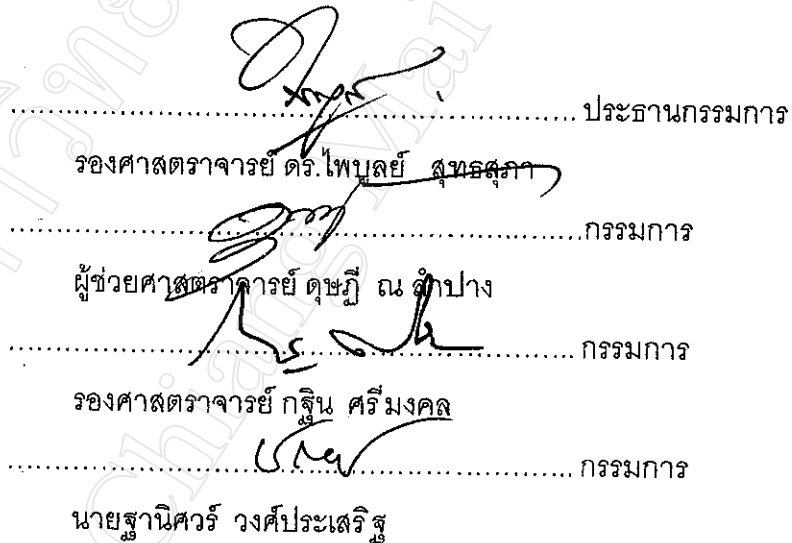 ........................ ประธานกรรมการ
รองศาสตราจารย์ ดร.ไพบูลย์ สุทธสุภา
........................ กรรมการ
ผู้ช่วยศาสตราจารย์ ดุษฎี ณ ลำปาง
........................ กรรมการ
รองศาสตราจารย์ กฐิน ศรีมงคล
........................ กรรมการ
นายฐานิศวร์ วงศ์ประเสริฐ